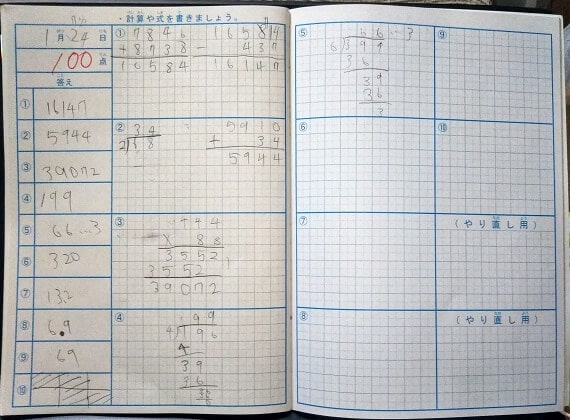 ・計算や式を書きましょう。
1月24日
100点
答え
① 16147
② 5944
③ 39072
④ 199
⑤ 66…3
⑥ 320
⑦ 132
⑧ 6.9
⑨ 69
⑩
①
7846
+8738
16584
16584
- 437
16147
②
34
2)68
5910
+ 34
5944
③
444
× 88
3552
3552
39072
④
199
4)796
4
39
36
36
⑤
66…3
6)399
36
39
36
3
⑥
⑦
⑧
⑨
⑩
(やり直し用)
(やり直し用)